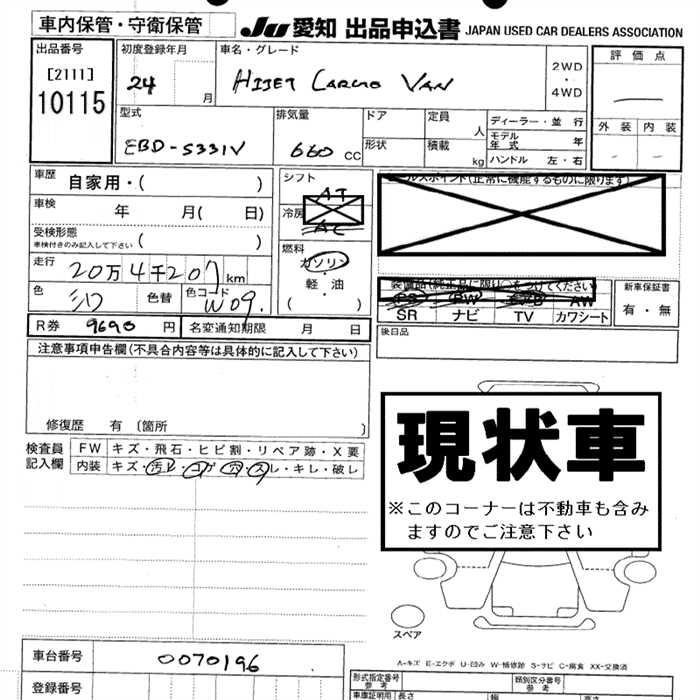 車内保管・守衛保管 JU 愛知 出品申込書 JAPAN USED CAR DEALERS ASSOCIATION
出品番号 初度登録年月 車名・グレード 評価点
[2111] 24 月 HIJET CARGO VAN 2WD・4WD
10115
型式 排気量 ドア 定員 人 ディーラー・並行 外装 内装
EBD-S331V 660 CC 形状 積載 kg モデル年式 年
ハンドル 左・右
車歴 自家用・( ) シフト AT
車検 年 月( 日) 冷房 AC
受検形態
車検付きのみ記入して下さい ( ) 燃料
走行 20万4千207km ガソリン・軽・油
色 色替 色コード W09. ( )
セールスポイント(正常に機能するものに限ります)
装備品(純正品に限り○をつけてください) 新車保証書
PS PW エアB AW 有・無
SR ナビ TV カワシート
R券 9690 円 名変通知期限 月 日 後日品
注意事項申告欄(不具合内容等は具体的に記入して下さい)
修復歴 有 〔箇所 〕
検査員記入欄 FW キズ・飛石・ヒビ割・リペア跡・X要
内装 キズ・汚レ・コゲ・穴・スレ・キレ・破レ
現状車
※このコーナーは不動車も含み
ますのでご注意下さい
スペア
A-キズ E-エクボ U-凹み W-補修跡 S-サビ C-腐食 XX-交換済
車台番号 0070196
登録番号
形式指定番号 参考 類別区分番号 参考
車庫証明用 長さ 幅 高さ